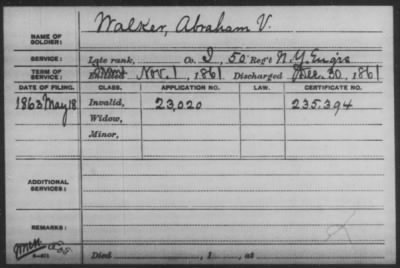 Walker, Abraham V.
NAME OF SOLDIER:
SERVICE: Late rank, Co. I, 50 Reg't N.Y. Engrs
TERM OF SERVICE: Enlisted Nov. 1, 1861 Discharged Dec. 30, 1861
DATE OF FILING. CLASS. APPLICATION NO. LAW. CERTIFICATE NO.
1863 May 18 Invalid, 23,020 235.394
Widow,
Minor,
ADDITIONAL SERVICES:
REMARKS:
Died , 1 , at